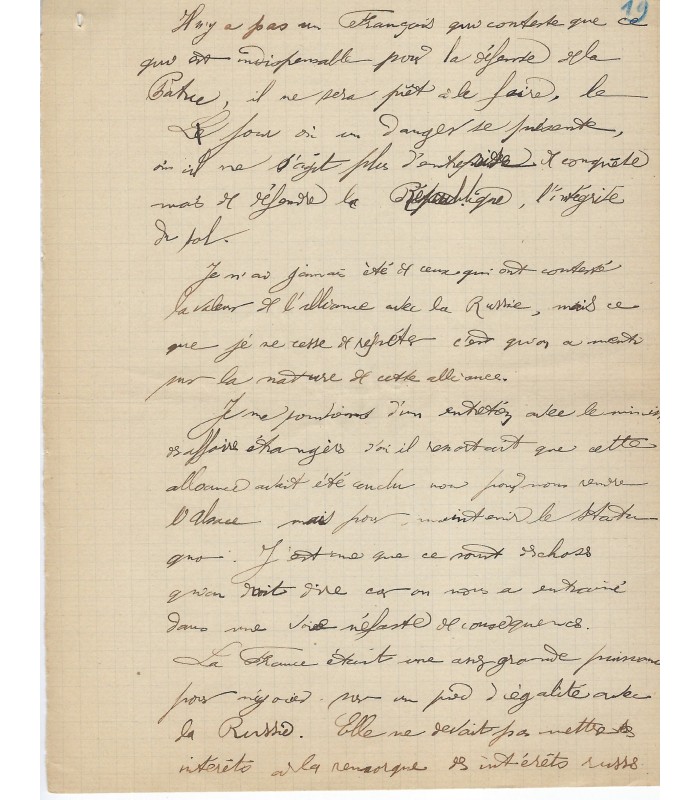 19
Il n'y a pas un Français qui conteste que ce
qui est indispensable pour la défense de la
Patrie, il ne sera prêt à le faire, le
Le jour où un danger se présente,
où il ne s'agit plus d'entreprise de conquête
mais de défendre la République, l'intégrité
du sol.
Je n'ai jamais été de ceux qui ont contesté
la valeur de l'alliance avec la Russie, mais ce
que je ne cesse de répéter c'est qu'on a menti
sur la nature de cette alliance.
Je me d'un entretien avec le minis
des affaires étrangères d'où il ressortait que cette
alliance avait été conclu non pour nous rendre
l'Alsace mais pour maintenir le statu
quo. J'estime que ce sont des choses
qu'on doit dire car on nous a entraîné
dans une voie néfaste de conséquences.
La France était une assez grande puissance
pour négocier sur un pied d'égalité avec
la Russie. Elle ne devait pas mettre ses
intérêts à la remorque des intérêts russes